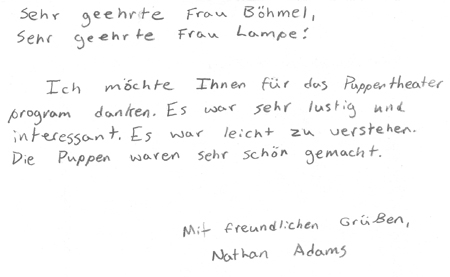 Sehr geehrte Frau Böhmel,
Sehr geehrte Frau Lampe!
Ich möchte Ihnen für das Puppentheater
program danken. Es war sehr lustig und
interessant. Es war leicht zu verstehen.
Die Puppen waren sehr schön gemacht.
Mit freundlichen Grüßen,
Nathan Adams